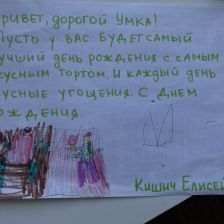 РИВЕТ, ДОРОГОЙ УМКА!
ПУСТЬ У ВАС БУДЕТ САМЫЙ
УЧШИЙ ДЕНЬ РОЖДЕНИЯ С САМЫМ
КУСНЫМ ТОРТОМ. И КАЖДЫЙ ДЕНЬ
КУСНЫЕ УГОЩЕНИЯ. С ДНЕМ
ОЖДЕНИЯ.
КИШИЧ ЕЛИСЕЙ